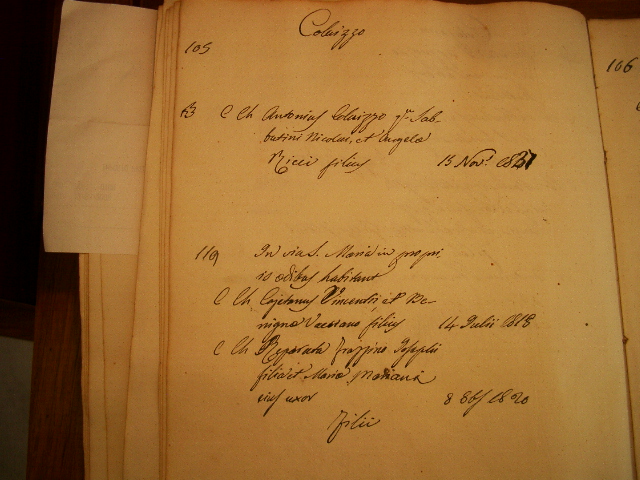 Coluizzo
105
106
63 C Ch Antonius Coluizzo qm Sab-
batini Nicolai, et Angela
Ricci filius 15 Novs 1837
119 In via S. Maria in propri
is ædibus habitant
C Ch Cajetanus Vincentii et Be-
nigna Veccrano filius 14 Julii 1818
C Ch Reparata Frazzino Josephi
filia et Maria Mariani
ejus uxor 8 8bs 1820
Filii